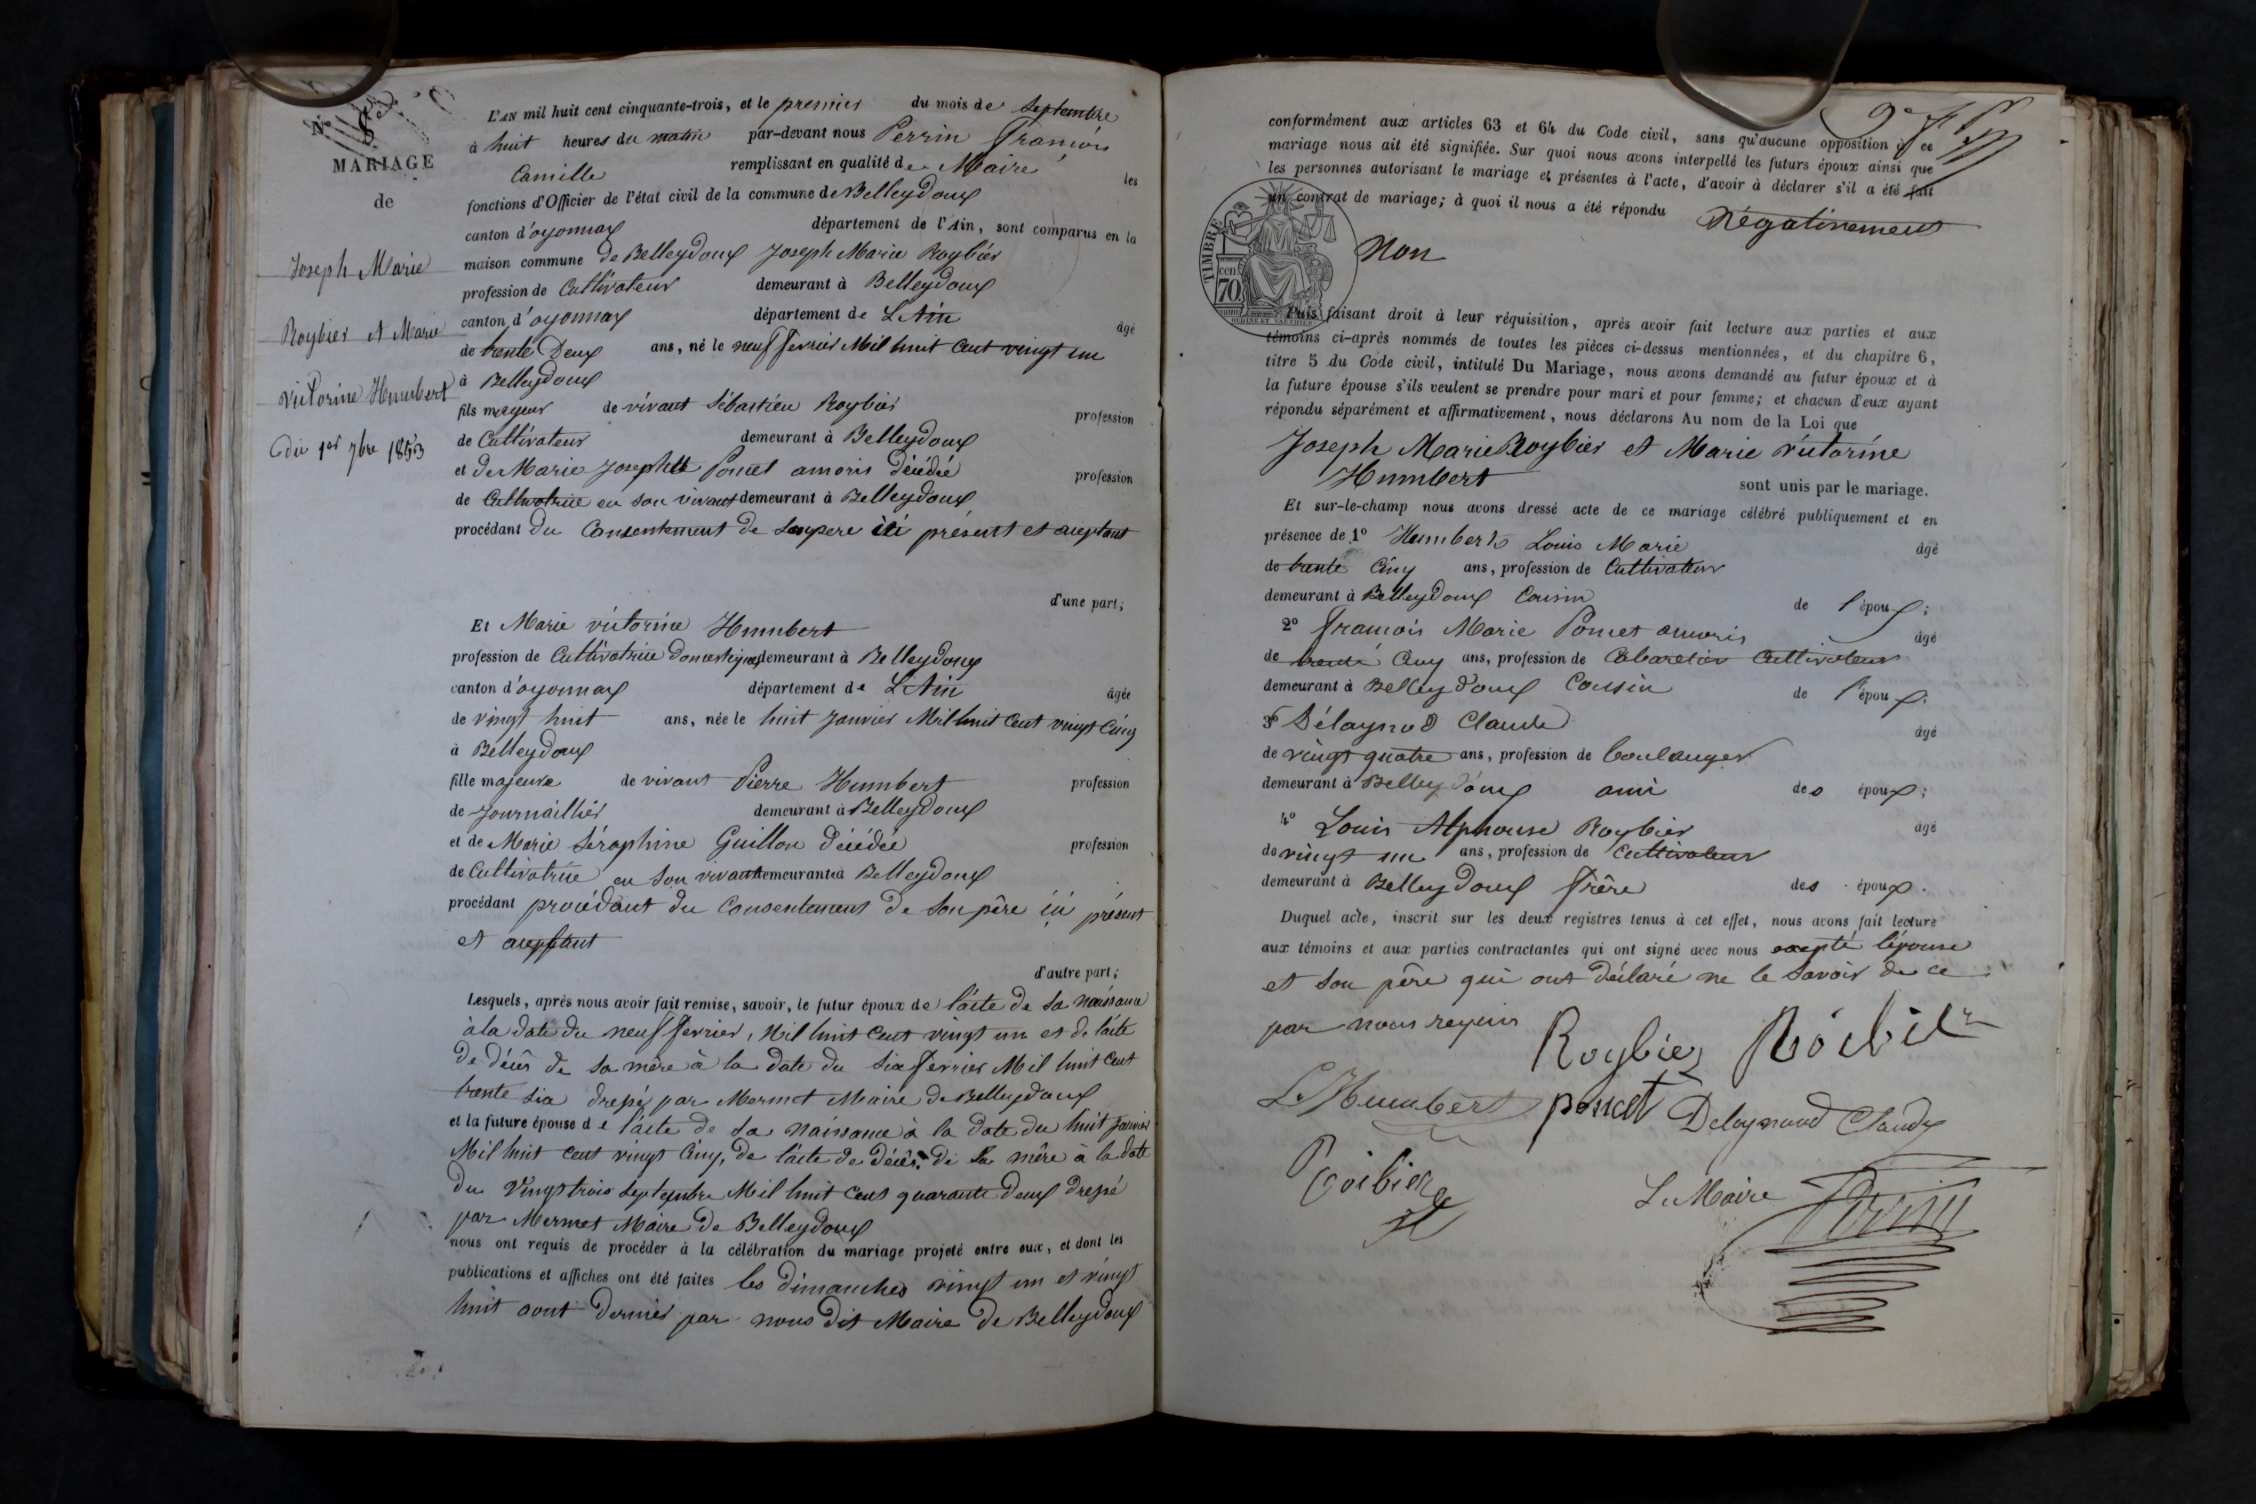 N.° 8.
MARIAGE
de
Joseph Marie
Roybier et Marie
victorine Humbert
du 1er 7bre 1853
L'AN mil huit cent cinquante-trois, et le premier du mois de septembre
à huit heures du matin par-devant nous Perrin François
Camille remplissant en qualité de Maire les
fonctions d'Officier de l'état civil de la commune de Belleydoux
canton d'oyonnax département de l'Ain, sont comparus en la
maison commune de Belleydoux Joseph Marie Roybier
profession de Cultivateur demeurant à Belleydoux
canton d'oyonnax département de L'Ain âgé
de trente Deux ans, né le neuf fevrier Mil huit Cent vingt un
à Belleydoux
fils majeur de vivant Sébastien Roybier profession
de Cultivateur demeurant à Belleydoux
et de Marie Josephte Poncet amoris décédée profession
de Cultivatrice en son vivant demeurant à Belleydoux
procédant du Consentement de son pere ici présent et acceptant
d'une part;
Et Marie victorine Humbert
profession de Cultivatrice domestique demeurant à Belleydoux
canton d'oyonnax département de L'Ain âgée
de vingt huit ans, née le huit Janvier Mil huit Cent vingt Cinq
à Belleydoux
fille majeure de vivant Pierre Humbert profession
de Journaillier demeurant à Belleydoux
et de Marie Séraphine Guillon décédée profession
de Cultivatrice en son vivant demeurant à Belleydoux
procédant procédant du Consentement de Son père ici présent
et acceptant
d'autre part;
Lesquels, après nous avoir fait remise, savoir, le futur époux de l'acte de sa naissance
à la date du neuf fevrier, Mil huit Cent vingt un et de l'acte
de décès de sa mère à la date du six fevrier Mil huit Cent
trente six dressé par Mermet Maire de Belleydoux
et la future épouse de l'acte de sa naissance à la date du huit janvier
Mil huit cent vingt Cinq, de l'acte de décès de sa mère à la date
du Vingt trois septembre Mil huit Cent quarante deux dressé
par Mermet Maire de Belleydoux
nous ont requis de procéder à la célébration du mariage projeté entre eux, et dont les
publications et affiches ont été faites les dimanches vingt un et vingt
huit aout dernier par nous dit Maire de Belleydoux
conformément aux articles 63 et 64 du Code civil, sans qu'aucune opposition à ce
mariage nous ait été signifiée. Sur quoi nous avons interpellé les futurs époux ainsi que
les personnes autorisant le mariage et présentes à l'acte, d'avoir à déclarer s'il a été fait
un contrat de mariage; à quoi il nous a été répondu Négativement
Non
TIMBRE
70 cen
Puis faisant droit à leur réquisition, après avoir fait lecture aux parties et aux
témoins ci-après nommés de toutes les pièces ci-dessus mentionnées, et du chapitre 6,
titre 5 du Code civil, intitulé Du Mariage, nous avons demandé au futur époux et à
la future épouse s'ils veulent se prendre pour mari et pour femme; et chacun d'eux ayant
répondu séparément et affirmativement, nous déclarons Au nom de la Loi que
Joseph Marie Roybier et Marie victorine
Humbert sont unis par le mariage.
Et sur-le-champ nous avons dressé acte de ce mariage célébré publiquement et en
présence de 1° Humbert Louis Marie âgé
de trente Cinq ans, profession de Cultivateur
demeurant à Belleydoux Cousin de l'époux;
2° François Marie Poncet amoris âgé
de trente Cinq ans, profession de Cabaretier Cultivateur
demeurant à Belleydoux Cousin de l'époux.
3° Délaynod Claude âgé
de vingt quatre ans, profession de boulanger
demeurant à Belleydoux ami des époux;
4° Louis Alphonse Roybier âgé
de vingt un ans, profession de Cultivateur
demeurant à Belleydoux frère des époux.
Duquel acte, inscrit sur les deux registres tenus à cet effet, nous avons fait lecture
aux témoins et aux parties contractantes qui ont signé avec nous excepté l'épouse
et son père qui ont déclaré ne le savoir de ce
par nous requis
Roybier Roibier
L. Humbert poncet Delaynaud Claude
Roibier
Le Maire Perrin